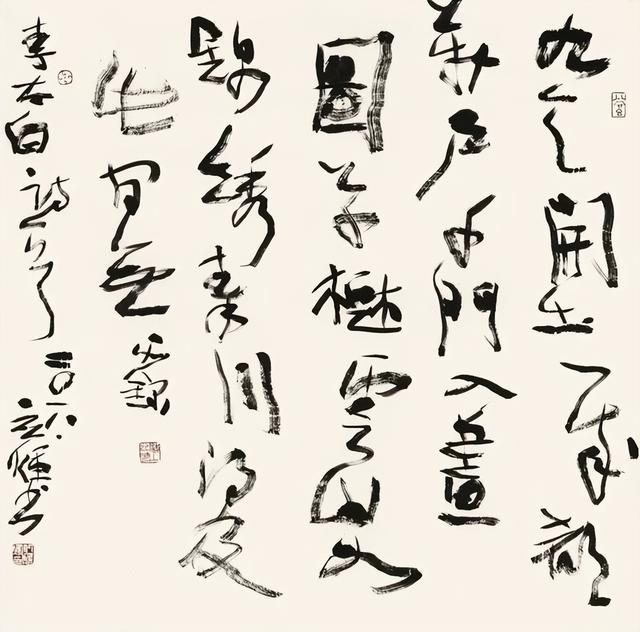 九天開出一成都
萬戶千門入畫
圖草樹雲山如
錦繡秦川得及
此間無
李太白詩
書